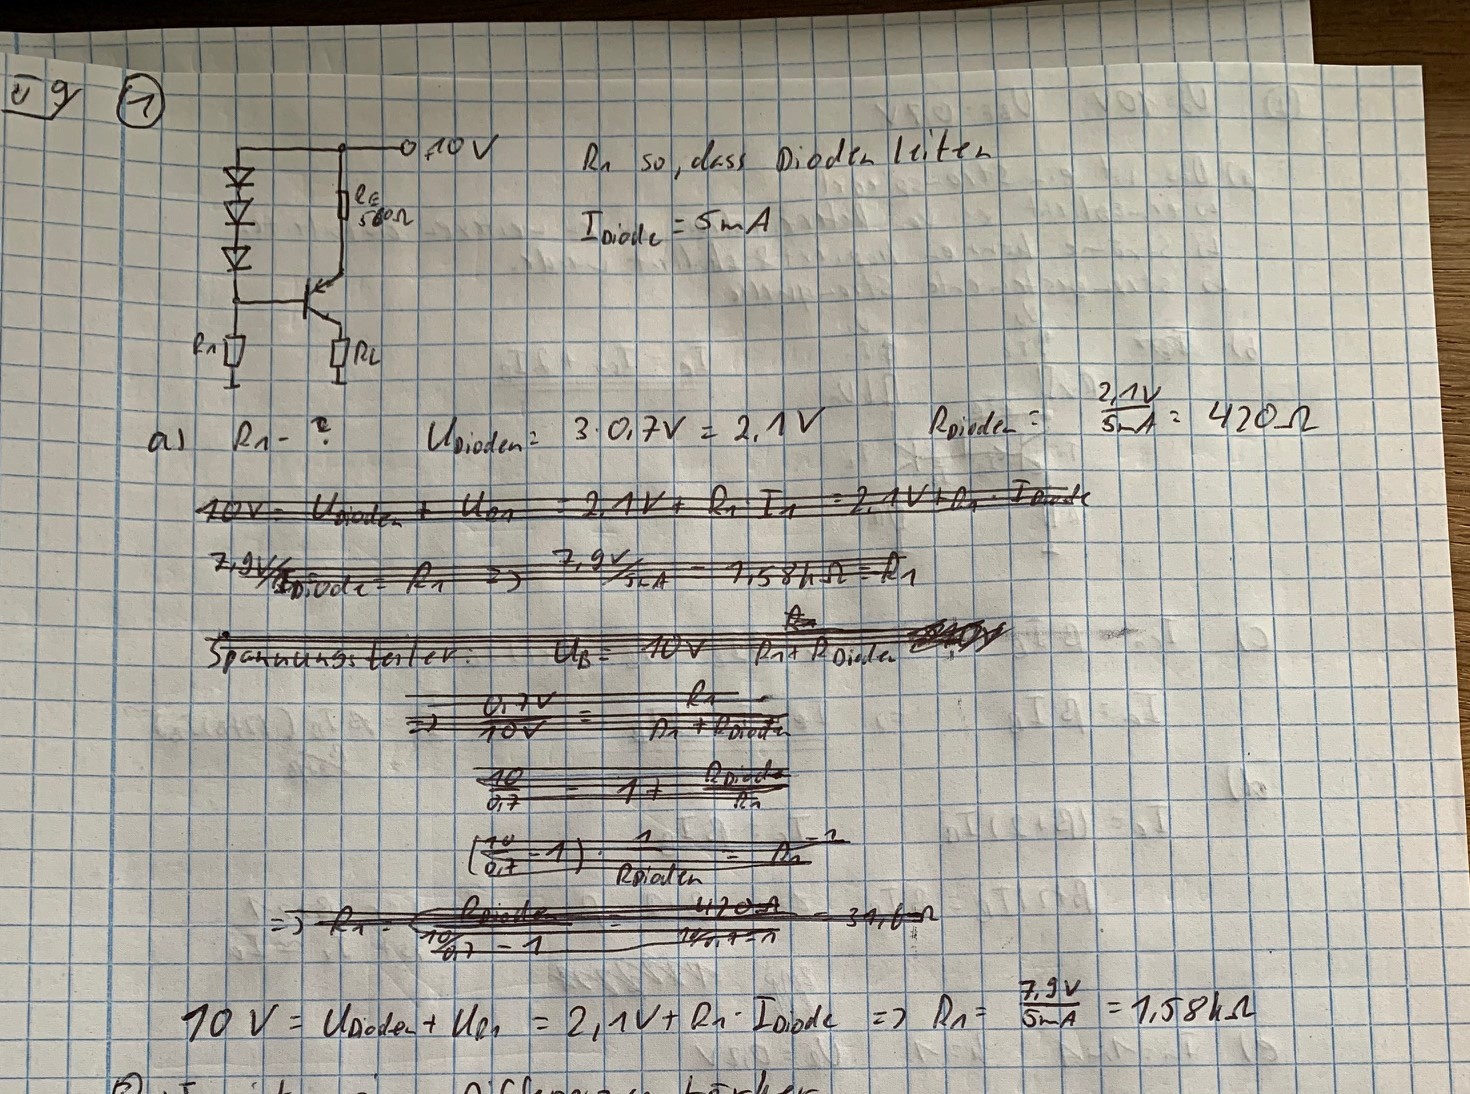 ü 9 ①
10V
R1 so, dass Dioden leiten
RE
560Ω
IDiode = 5mA
R1
RL
a) R1 = ? UDioden = 3·0,7V = 2,1V RDioden = 2,1V/5mA = 420Ω
10V = UDioden + UR1 = 2,1V + R1 · I1 = 2,1V + R1 · IDiode
7,9V/IDiode = R1 => 7,9V/5mA = 1,58kΩ = R1
Spannungsteiler: UB = 10V R1/(R1 + RDioden)
=> 0,7V/10V = R1/(R1 + RDioden)
10/0,7 = 1 + RDiode/R1
(10/0,7 - 1) · 1/RDioden = R1^-1
=> R1 = RDioden/(10/0,7 - 1) = 420Ω/(10/0,7 - 1) = 31,6Ω
10V = UDioden + UR1 = 2,1V + R1 · IDiode => R1 = 7,9V/5mA = 1,58kΩ